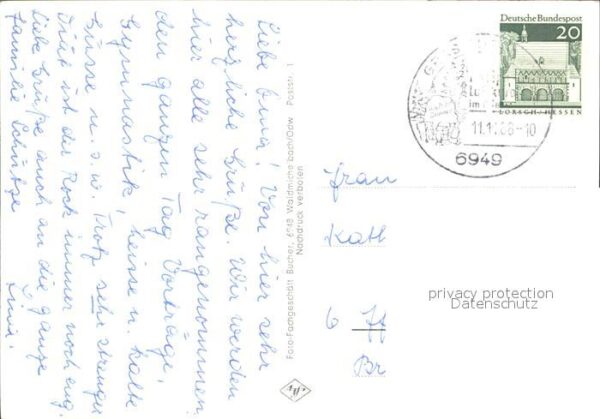 Liebe Erna! Von hier sehr
herzliche Grüße. Wir werden
hier alle sehr rangenommen.
den ganzen Tag Vorträge,
Gymnastik, heisse u. kalte
Güsse u.s.w. Trotz sehr strenger
Diät ist der Rock immer noch eng.
Liebe Grüße auch an die ganze
Familie Schütze
Foto-Fachgeschäft Bucher, 6948 Waldmichelbach/Odw Poststr. 1
Nachdruck verboten
Deutsche Bundespost
20
LORSCH/HESSEN
6949
Frau
Kath
6
Br
privacy protection
Datenschutz